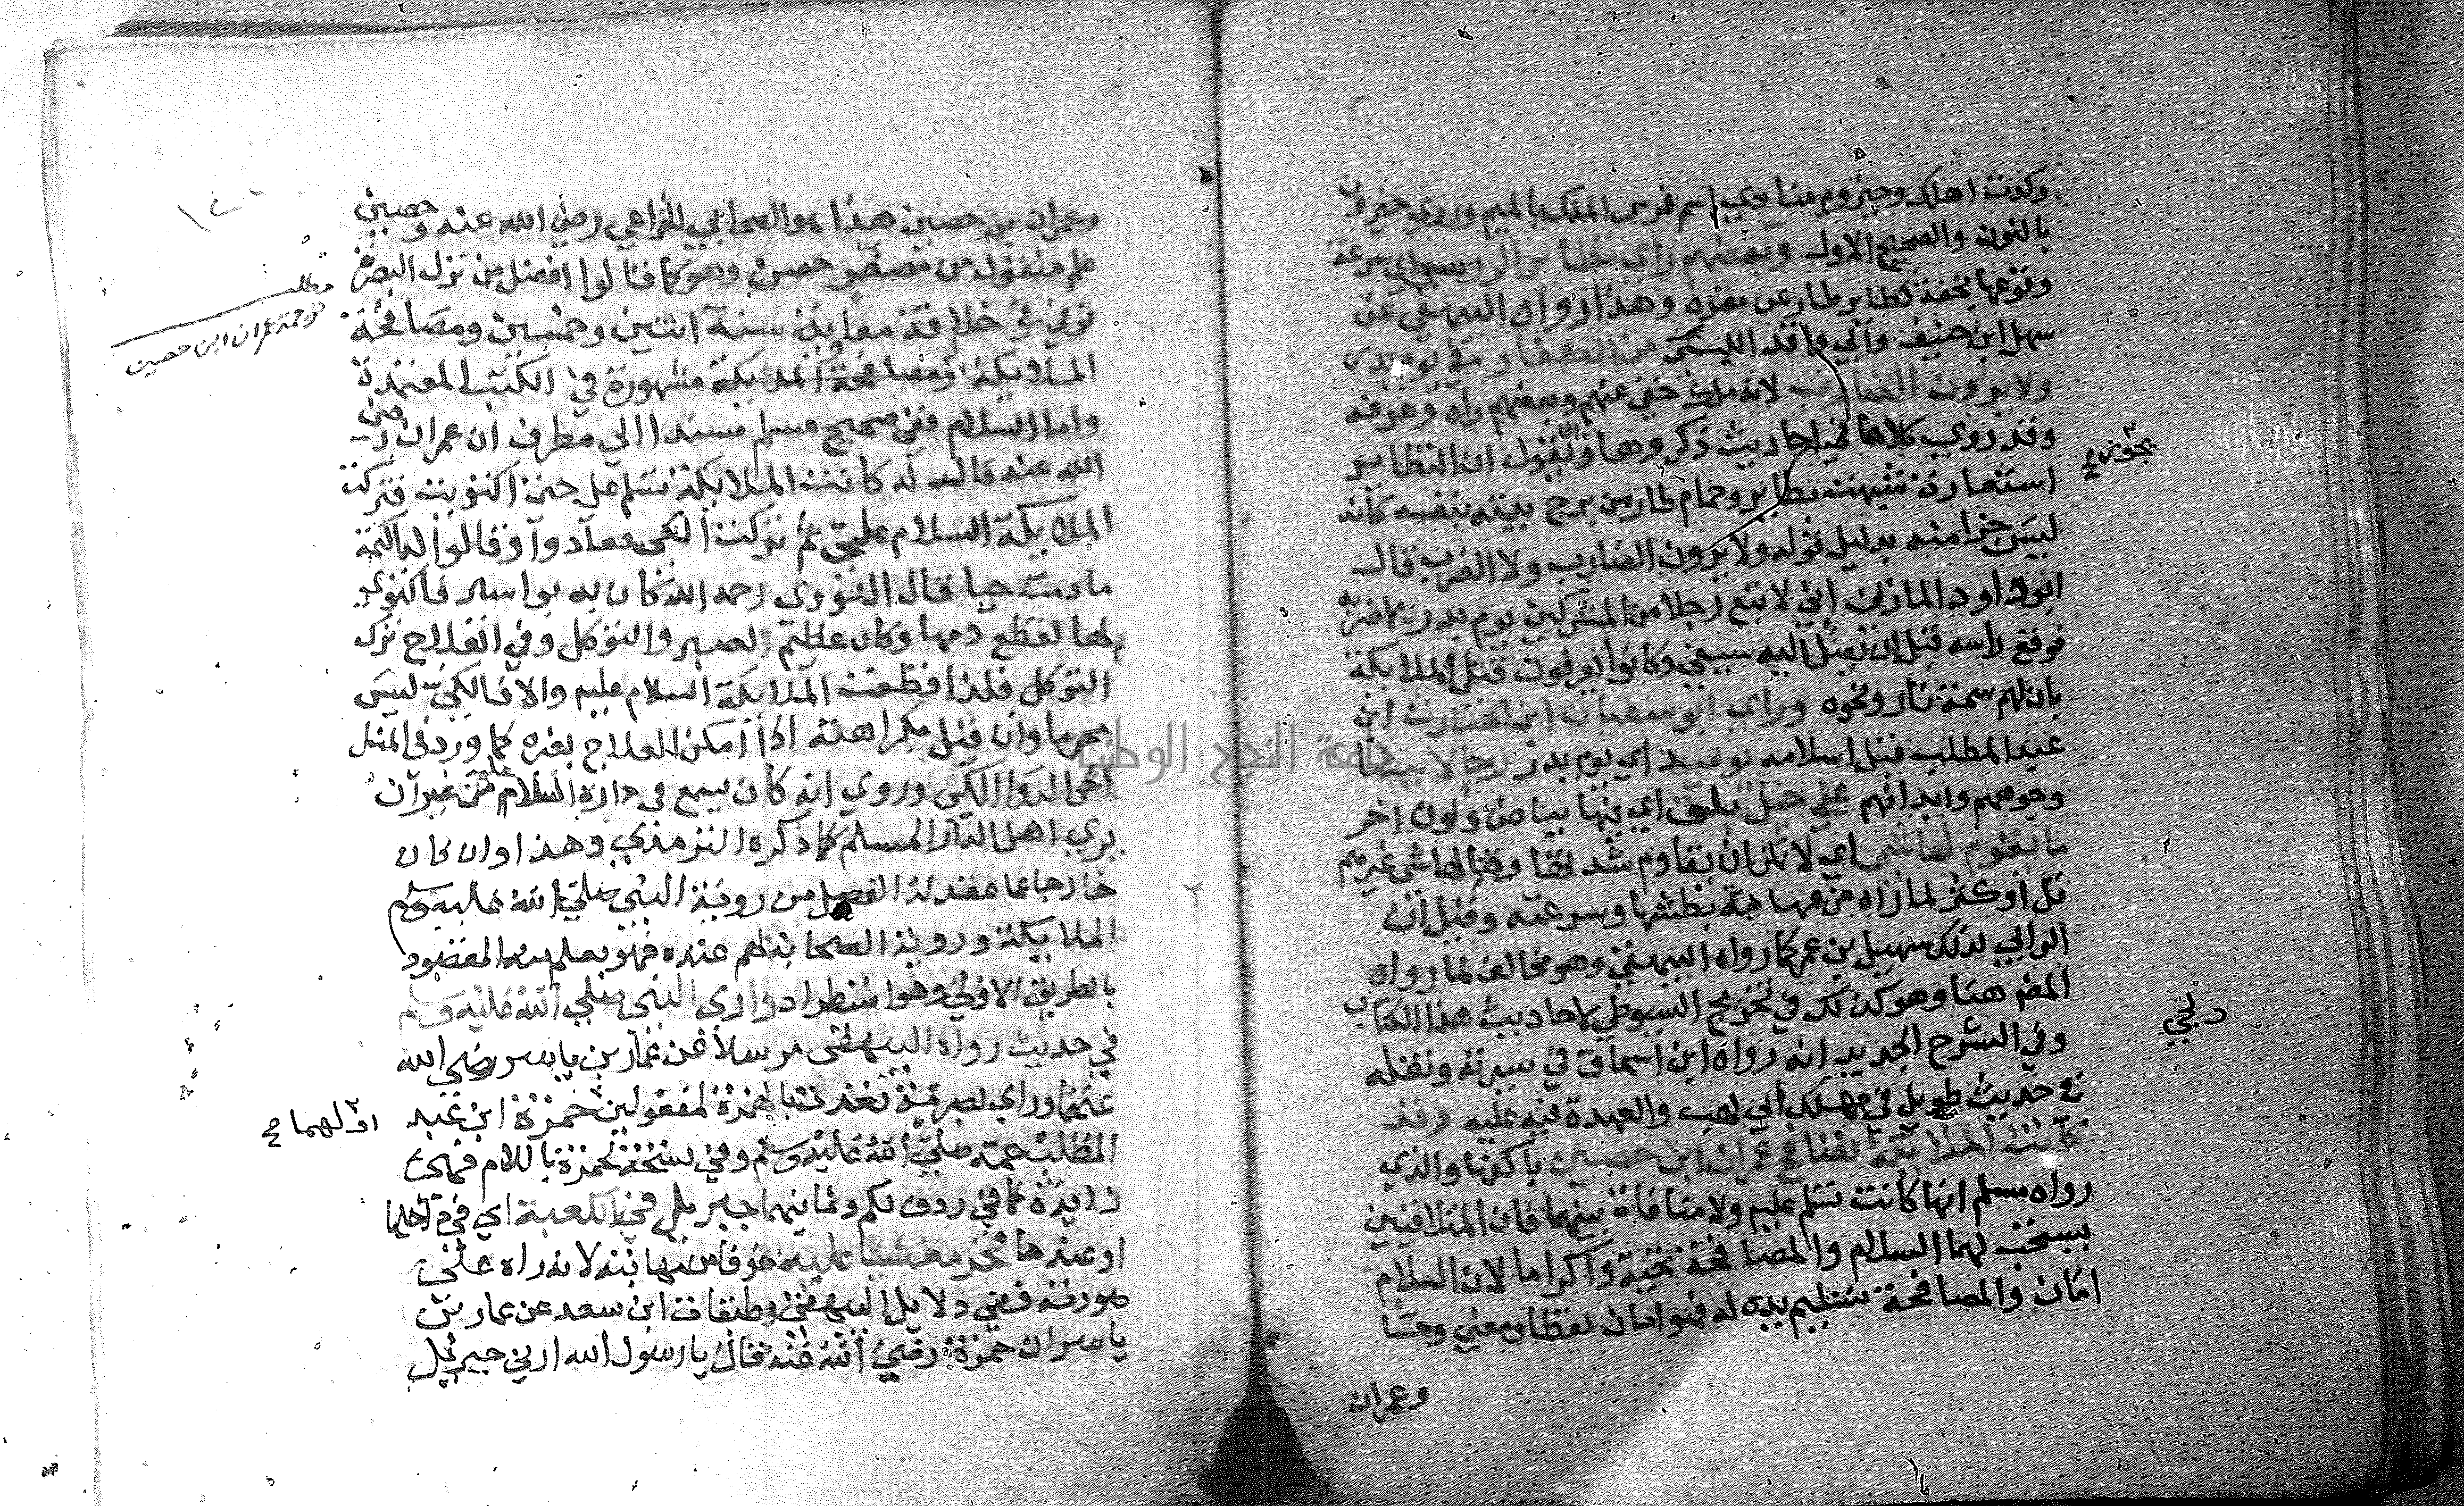 وكونت اهلك وحيزوم منادي باسم فرس الملك بالميم وروي حيزون
بالنون والصحيح الاول وبعضهم راي تطاير الروس اي سرعة
وقوعها بخفة كطاير طار عن مقره وهذا رواه البيهقي عن
سهل ابن حنيف وابي واقد الليثي من الكفار في يوم بدر
ولا يرون الضارب لانه ملك خفي عنهم وبعضهم راه وعرفه
وقد روي كلاهما في احاديث ذكروها ونقول ان التطاير
استعارة شبهت بطاير وحمام طار من برج بيته بنفسه كانه
ليس جزا منه بدليل قوله ولا يرون الضارب ولا الضرب قال
ابو داود المازني اني لاتبع رجلا من المشركين يوم بدر لاضربه
فوقع راسه قبل ان يصل اليه سيفي وكانوا يعرفون قتل الملايكة
بان لهم سمة نار ونحوه وراي ابو سفيان ابن الحارث ابن
عبد المطلب قبل اسلامه يوميذ اي يوم بدر رجالا بيضا
وجوههم وابدانهم علي خيل بلق اي بها بياض ولون اخر
ما يقوم لها شي اي لا يمكن ان يقاوم شدتها
قل او كثر لما راه من مهابة بطشها وسرعته وقيل ان
الرايي لذلك سهيل بن عمر كما رواه البيهقي وهو مخالف لما رواه
المص هنا وهو كذلك في تخريج السيوطي لاحاديث هذا الكتاب
وفي الشرح الجديد انه رواه ابن اسحاق في سيرته ونقله
في حديث طويل في مهلك ابي لهب والعهدة فيه عليه وقد
كانت الملايكة تصافح عمران ابن حصين باكفها والذي
رواه مسلم انها كانت تسلم عليه ولا منافاة بينهما فان المتلاقيين
يستحب لهما السلام والمصافحة تحية واكراما لان السلام
امان والمصافحة تسليم يده له فهو امان لفظا ومعني وحسا
وعمران
وعمران بن حصين هذا هو الصحابي الخزاعي رضي الله عنه وحصين
علم منقول من مصغر حصن وهو كما قالوا افضل من نزل البصرة
توفي في خلافة معاوية سنة اثنين وخمسين ومصافحة
الملايكة ومصافحة الملايكة مشهورة في الكتب المعتمدة
واما السلام ففي صحيح مسلم مسندا الي مطرف ان عمران رضي
الله عنه قال له كانت الملايكة تسلم علي حتي اكتويت فتركت
الملايكة السلام علي ثم تركت الكي فعادوا وقالوا
ما دمت حيا قال النووي رحمه الله كان به بواسير فاكتوي
لها لقطع دمها وكان عظيم الصبر والتوكل وفي العلاج ترك
التوكل فلذا قطعت الملايكة السلام عليه والا فالكي ليس
محرما وان قيل بكراهته اذا امكن العلاج بغيره كما ورد في المثل
اخر الدوا الكي وروي انه كان يسمع في داره السلام عليه من غير ان
يري اهل الدار المسلم كما ذكره الترمذي وهذا وان كان
خارجا عما عقد له الفصل من روية النبي صلي الله عليه وسلم
الملايكة وروية الصحابة لهم عنده فهو يعلم منه المقصود
بالطريق الاولي وهو استطراد واري النبي صلي الله عليه وسلم
في حديث رواه البيهقي مرسلا عن عمار بن ياسر رضي الله
عنهما وراي بصرية تعدت بالهمزة لمفعولين حمزة ابن عبد
المطلب عمه صلي الله عليه وسلم وفي نسخة لحمزة باللام فهي
زايدة كما في ردف لكم جبريل في الكعبة اي في داخلها
او عندها فخر مغشيا عليه خوفا من مهابته لانه راه علي
صورته ففي دلايل البيهقي وطبقات ابن سعد عن عمار بن
ياسر ان حمزة رضي الله عنه قال يا رسول الله ارني جبريل
مطلب
ترجمة عمران ابن حصين
اولهما